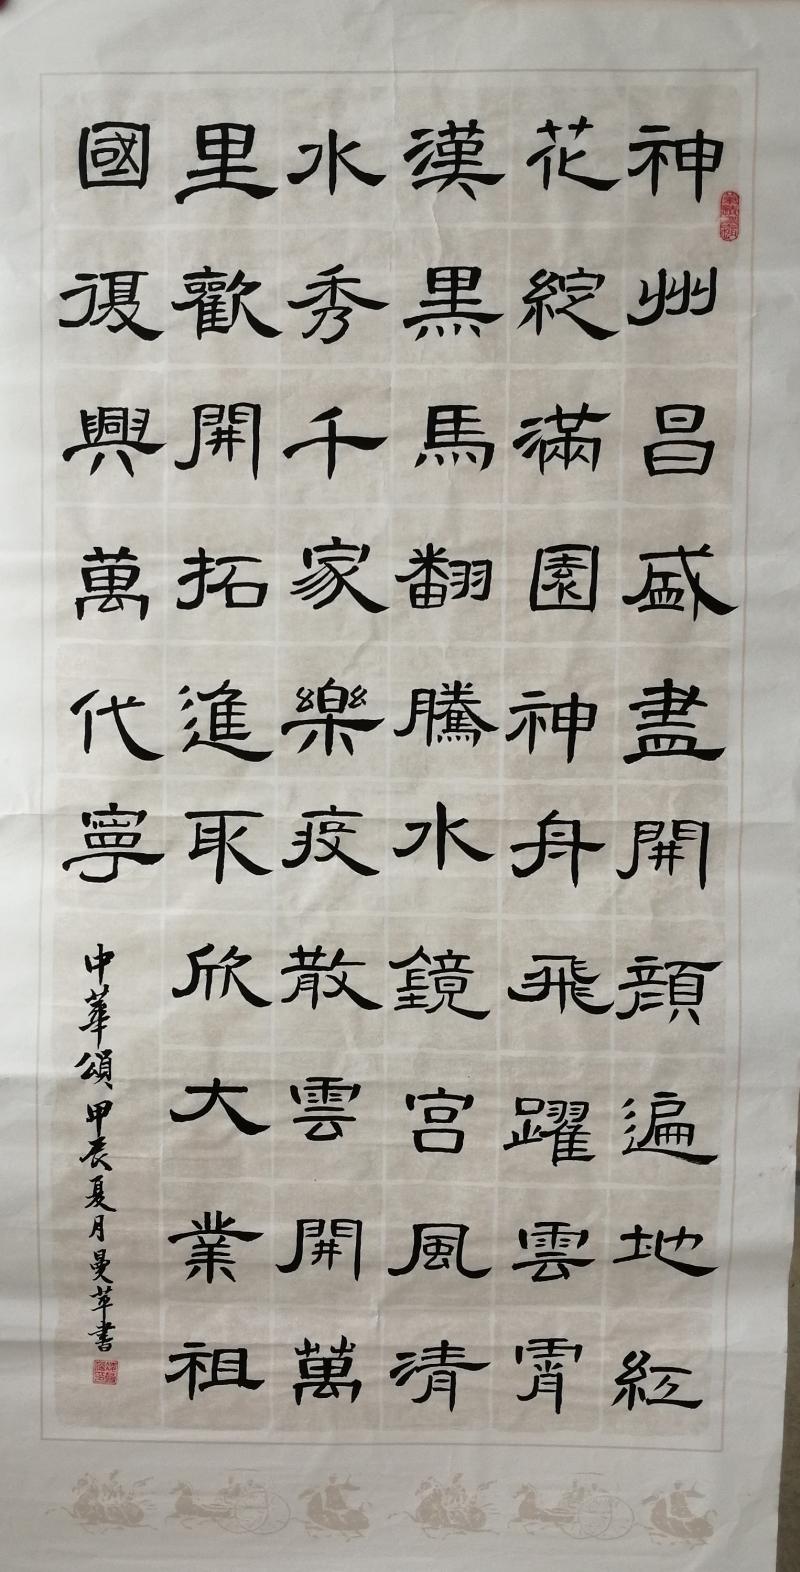 神州昌盛盡開顔遍地紅
花綻滿園神舟飛躍雲霄
漢黑馬翻騰水鏡宮風清
水秀千家樂疫散雲開萬
里歡開拓進取欣大業祖
國復興萬代寧
中華頌甲辰夏月曼草書